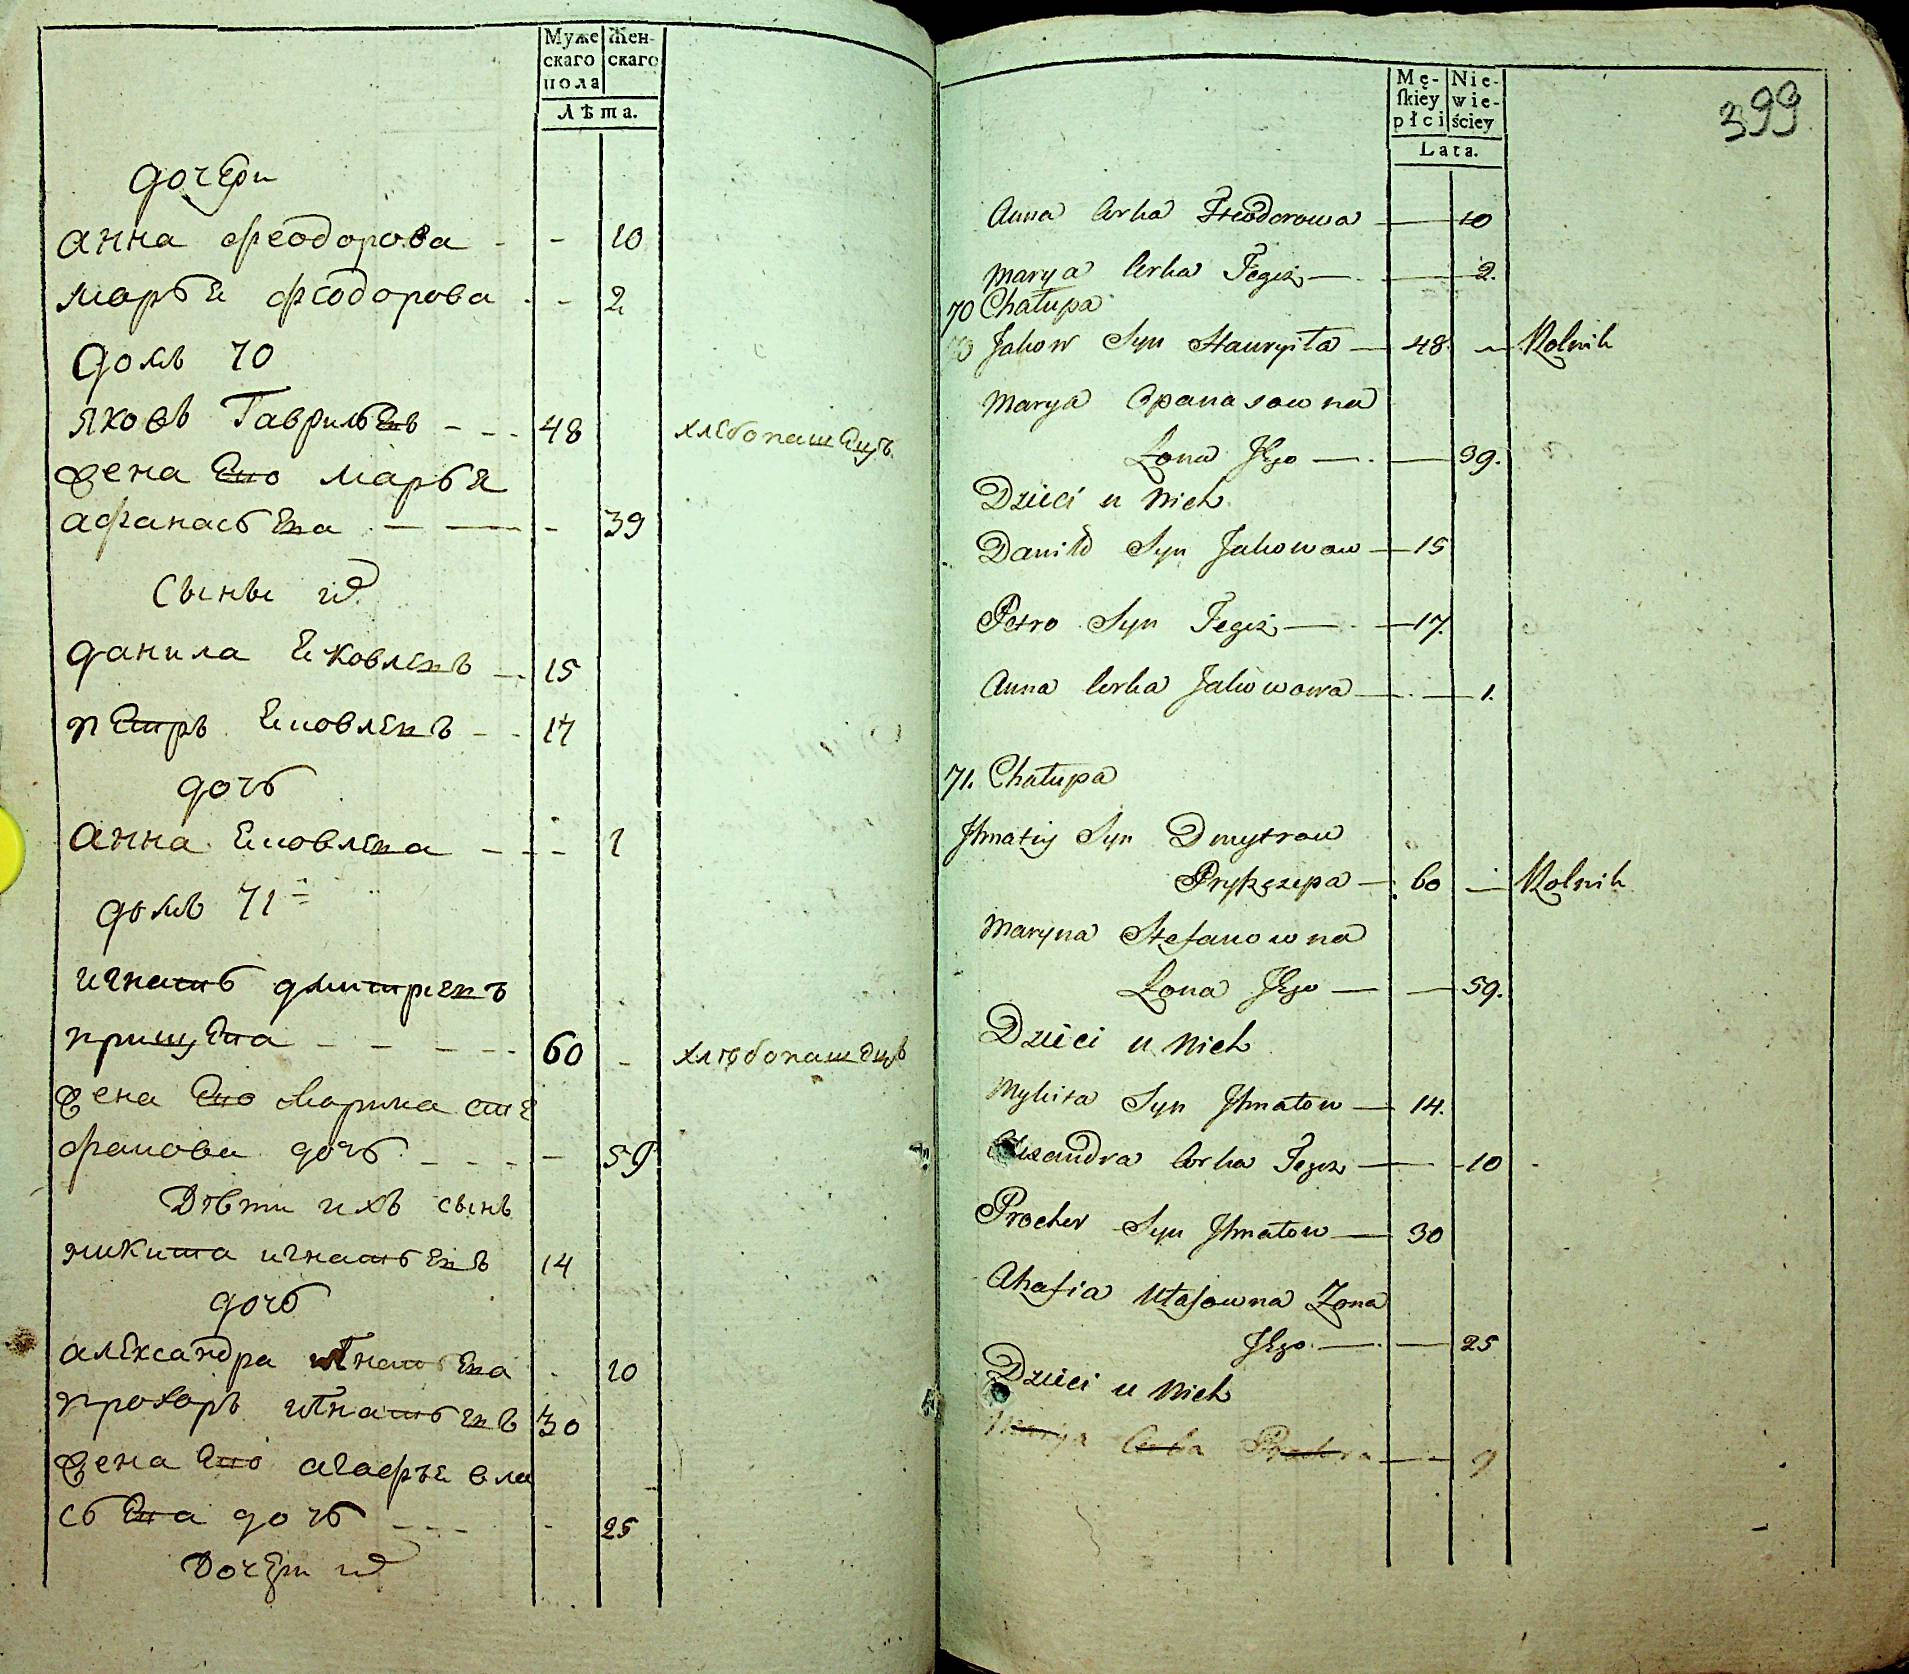 Муже
скаго
пола
Жен-
скаго
Лѣта.
дочери
анна феодорова - - 10
марья феодорова - - 2
домъ 70
яковъ Гаврильевъ - - - 48 хлебопашецъ
жена Ево марья
афанасьева - - - 39
Сыны их
данила яковлевъ - 15
петръ яковлевъ - - 17
дочь
анна яковлева - - - 1
домъ 71
игнать дмитриевъ
прищепа - - - - - 60 - хлѣбопашецъ
жена Ево марина сте
фанова дочь - - - - 59
Дѣти ихъ сынъ
микита игнатьевъ 14
дочь
александра игнатьева - 10
прохоръ игнатьевъ 30
жена Ево агафья вла
сьева дочь - - - - 25
Дочери их
Mę-
skiey
płci
Nie-
wie-
ściey
Lata.
399
Anna Corka Fteodorowa — 10
Marya Corka Tegoż — — 2.
70 Chałupa
70 Jakow Syn Hawryiła — 48. — Rolnik
Marya Opanasowna
Żona Jego — — 39.
Dzieci u Nich
Daniło Syn Jakowow — 15
Petro Syn Tegoż — — 17.
Anna Corka Jakowowa — — 1.
71. Chałupa
Ihnatiy Syn Dmytrow
Prypszczepa — 60 — Rolnik
Maryna Stefanowna
Żona Jego — — 59.
Dzieci u Nich
Mykita Syn Ihnatow — 14.
Olexandra Corka Tegoż — 10
Prochor Syn Ihnatow — 30
Ahafia Własowna Żona
Jego — — 25
Dzieci u Nich
Marya Corka Prochora — — 9